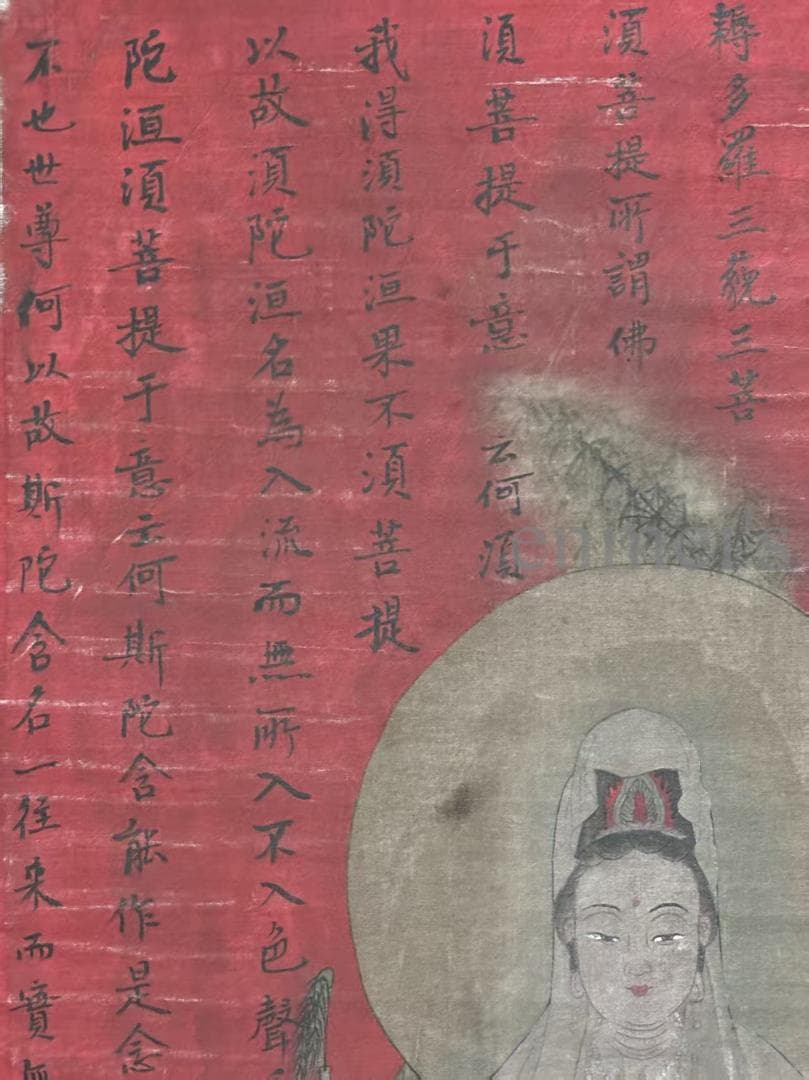 耨多羅三藐三菩
須菩提所謂佛
須菩提于意云何須
我得須陀洹果不須菩提
以故須陀洹名為入流而無所入不入色聲
陀洹須菩提于意云何斯陀含能作是念
不也世尊何以故斯陀含名一往来而實無